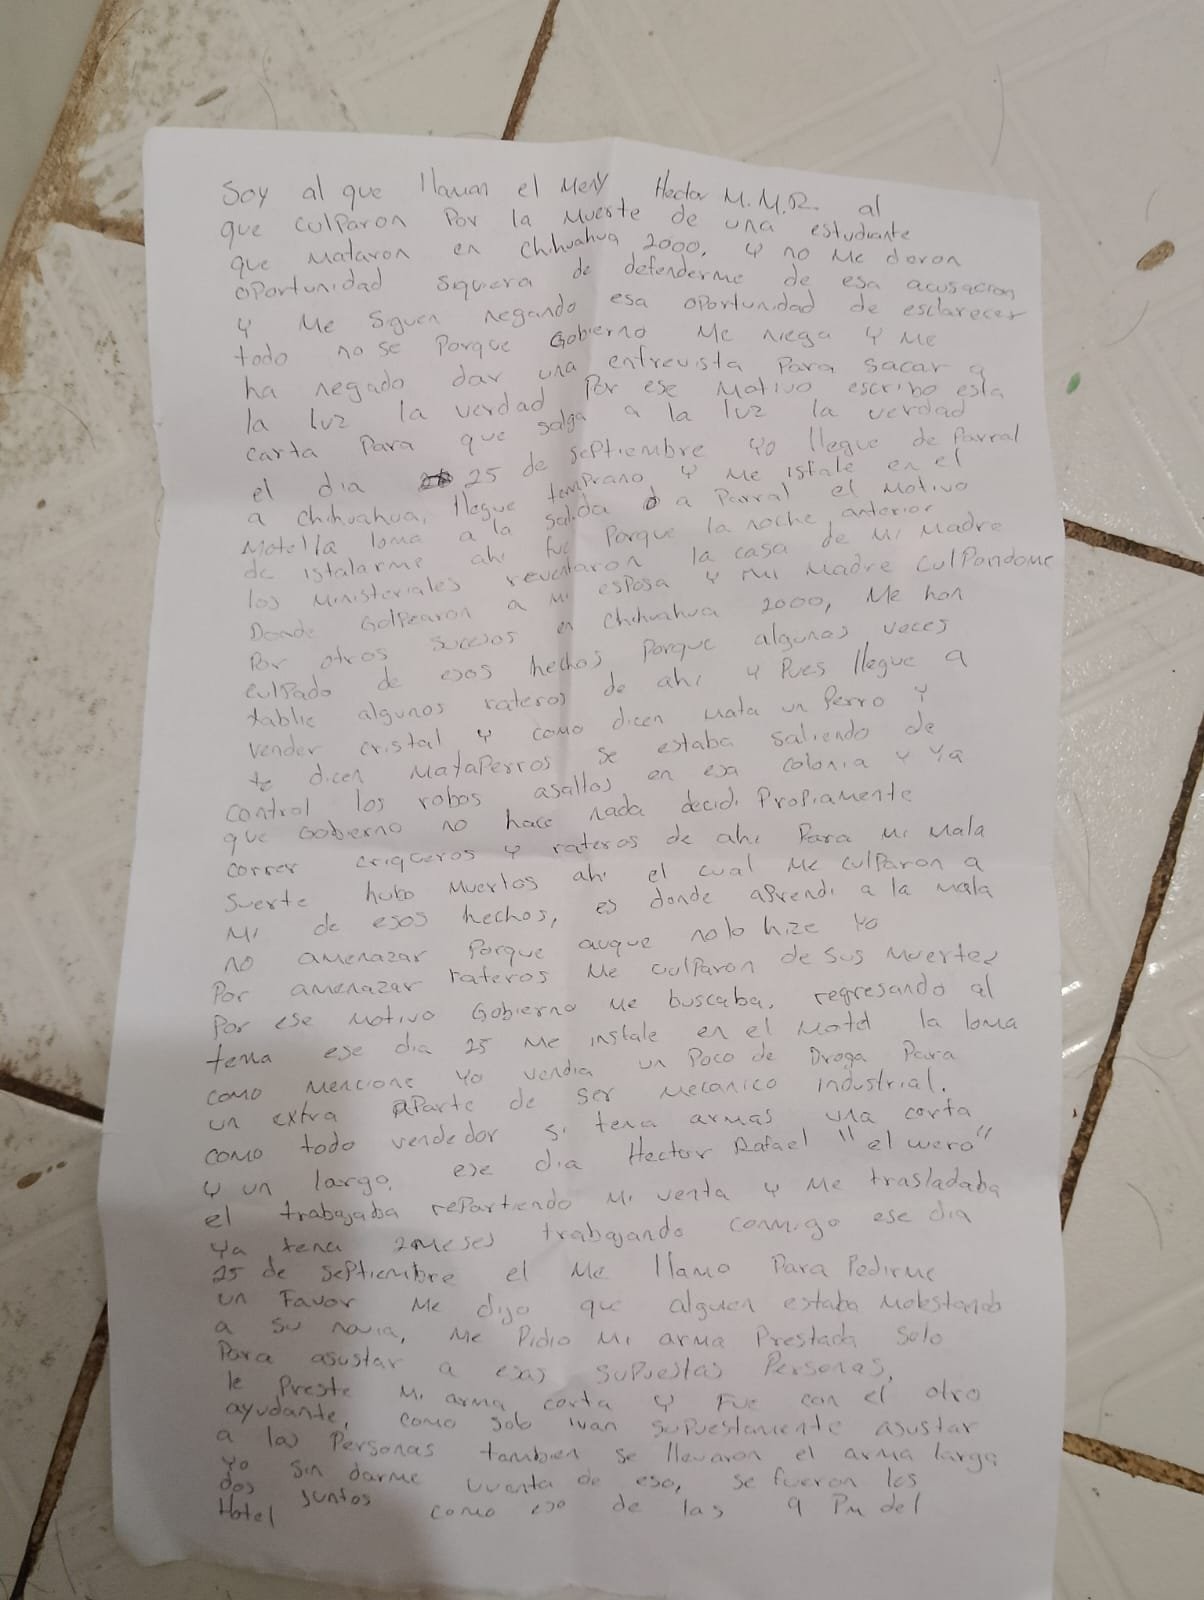 Soy al que llaman el Meny Hector M.M.R. al
que culparon Por la Muerte de una estudiante
que Mataron en Chihuahua 2000, y no Me doron
oportunidad siquera de defenderme de esa acusacion
y Me siguen negando esa oportunidad de esclarecer
todo no se Porque Gobierno Me niega y Me
ha negado dar una entrevista Para sacar a
la luz la verdad Por ese Motivo escribo esta
carta Para que salga a la luz la verdad
el dia 25 de septiembre yo llegue de Parral
a chihuahua, llegue temprano y Me istale en el
Motel la loma a la salida a Parral el Motivo
de istalarme ahi fue Porque la noche anterior
los Ministeriales reventaron la casa de Mi Madre
Donde Golpearon a Mi esposa y Mi Madre culpandome
Por otros sucesos en Chihuahua 2000, Me han
culpado de esos hechos Porque algunas veces
tablie algunos rateros de ahi y Pues llegue a
vender cristal y como dicen Mata un Perro y
te dicen MataPerros se estaba saliendo de
control los robos asaltos en esa colonia y ya
que Gobierno no hace nada decidi Propiamente
correr criqueros y rateros de ahi Para Mi Mala
suerte hubo Muertos ahi el cual Me culparon a
Mi de esos hechos, es donde aprendi a la Mala
no amenazar Porque auque nolo hize yo
Por amenazar rateros Me culparon de sus Muertes
Por ese Motivo Gobierno Me buscaba, regresando al
tema ese dia 25 Me instale en el Motel la loma
como Mencione yo vendia un Poco de Droga Para
un extra aparte de ser Mecanico industrial.
como todo vendedor si tena armas una corta
y un largo, ese dia Hector Rafael "el wero"
el trabajaba repartiendo Mi venta y Me trasladaba
ya tena 2 Meses trabajando conmigo ese dia
25 de septiembre el Me llamo Para Pedirme
un Favor Me dijo que alguien estaba Molestando
a su novia, Me Pidio Mi arma Prestada solo
Para asustar a esas supuestas Personas,
le Preste Mi arma corta y Fue con el otro
ayudante, como solo ivan supuestamente asustar
a las Personas tambien se llevaron el arma larga
yo sin darme cuenta de eso, se fueron los
dos juntos como eso de las 9 Pm del
Hotel